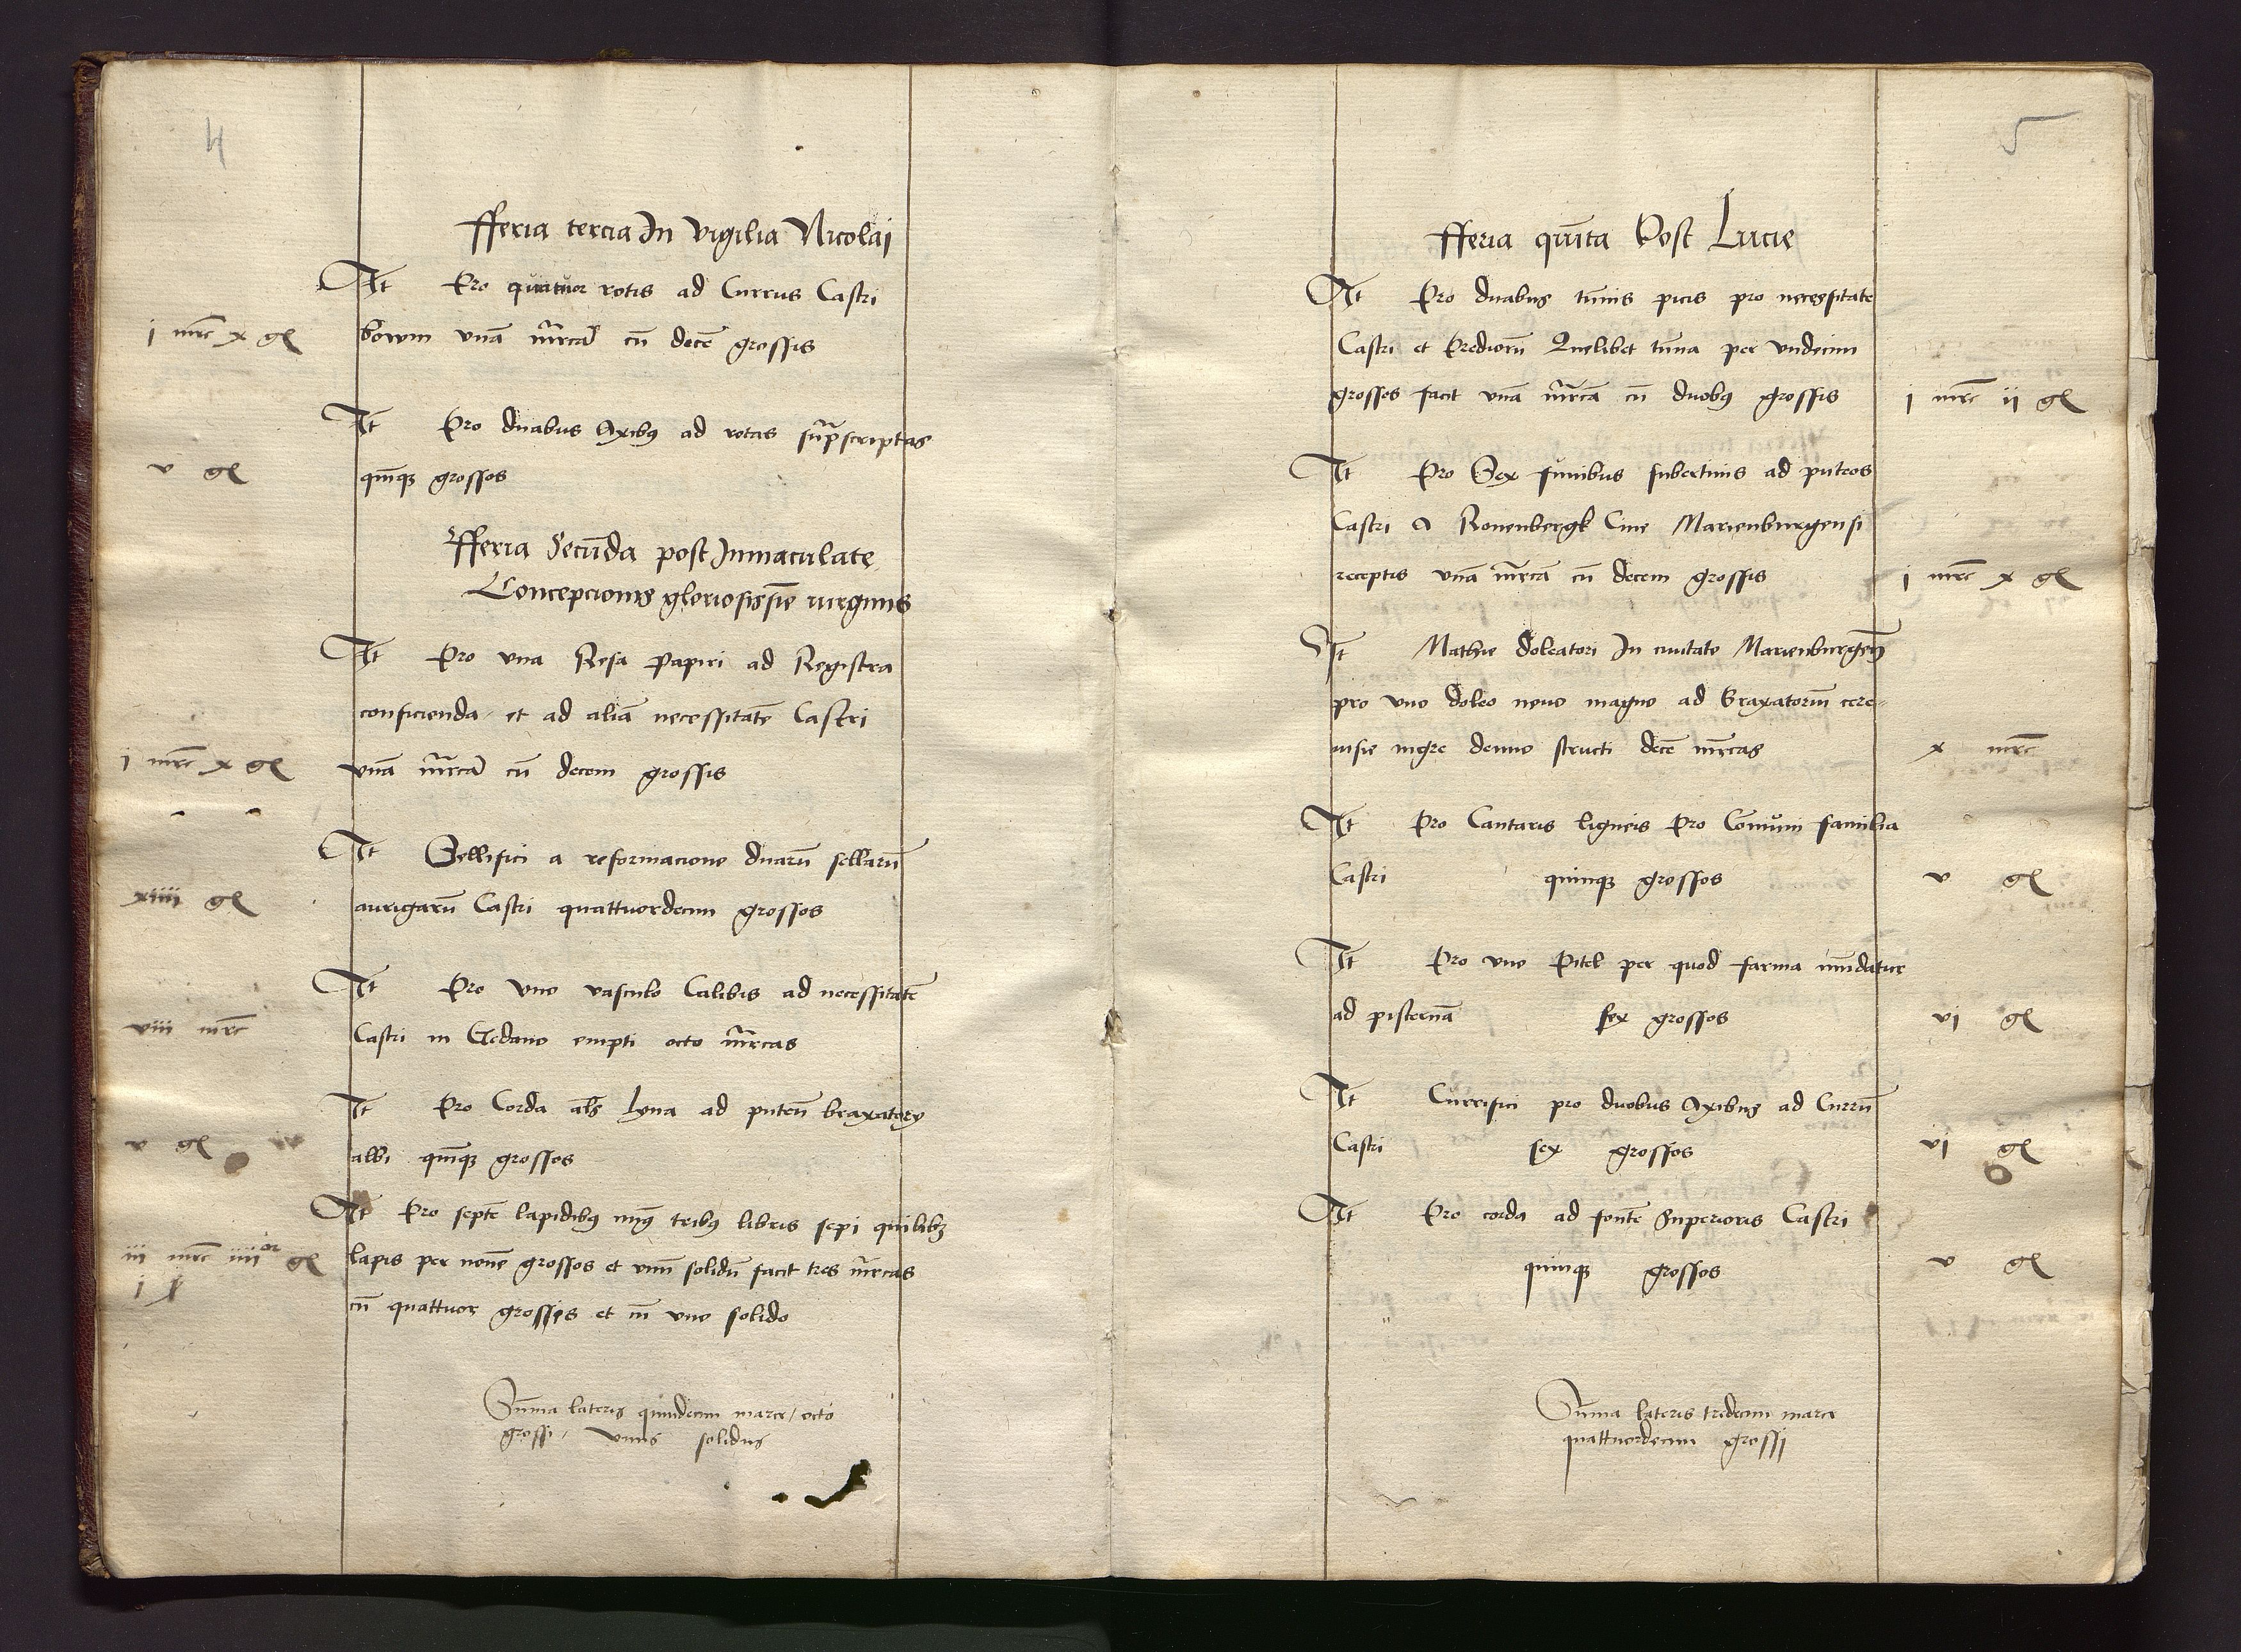 4
fferia tercia In vigilia Nicolai
It Pro quatuor rotis ad Currus Castri
i mrc x gl boum vna mrca cu dece grossis
It Pro duabus Axibus ad rotas suprascriptas
v gl quinque grossos
fferia Secunda post Inmaculate
Concepcionis gloriosissime virginis
It Pro vna Resa papiri ad Registra
conficienda et ad alia necessitate Castri
i mrc x gl vna mrca cu decem grossis
It Sellifici a reformacione duaru sellaru
xiiii gl aurigaru Castri quattuordecim grossos
It Pro vno vasculo Calibis ad necessitate
viii mrc Castri in Gedano empti octo mrcas
It Pro Corda als lyna ad puteu braxatory
v gl albi quinque grossos
It Pro septe lapidibus minus tribus libris sepi quilibz
iii mrc iiii or gl lapis per nouem grossos et vnu solidu facit tres mrcas
i ß cu quattuor grossis et cu vno solido
Suma lateris quindecim marce / octo
grossi / vnus solidus
5
fferia quinta Post Lucie
It Pro duabus tunis picis pro necessitate
Castri et Prediorum Quelibet tuna per vndecim
grossos facit vna mrca cu duobus grossis i mrc ii gl
It Pro Sex funibus subertinis ad puteos
Castri a Ronenbergk Ciue Marienburgensi
receptis vna mrca cu decem grossis i mrc x gl
It Mathie doleatori In ciuitate Marienburgen
pro vno doleo nouo magno ad braxatoriu cere-
uisie nigre denuo structi dece mrcas x mrc
It Pro Cantaris ligneis Pro Comuni familia
Castri quinque grossos v gl
It Pro vno Pitel per quod farina mundatur
ad pisterna sex grossos vi gl
It Currifici pro duobus Axibus ad Curru
Castri sex grossos vi gl
It Pro corda ad fonte Superioris Castri
quinque grossos v gl
Suma lateris tridecim marce
quattuordecim grossi